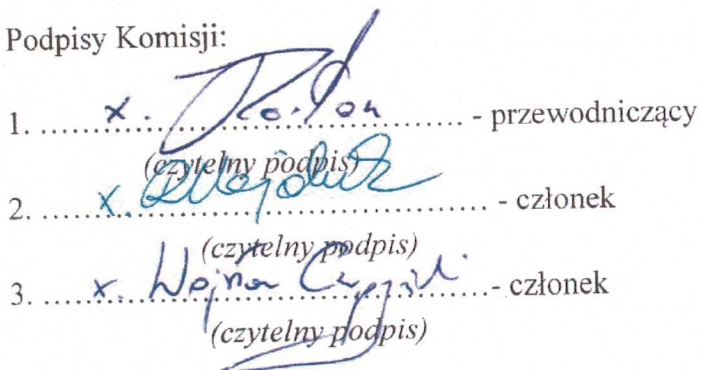 Podpisy Komisji:
1. x. - przewodniczący
(czytelny podpis)
2. x. - członek
(czytelny podpis)
3. x. - członek
(czytelny podpis)